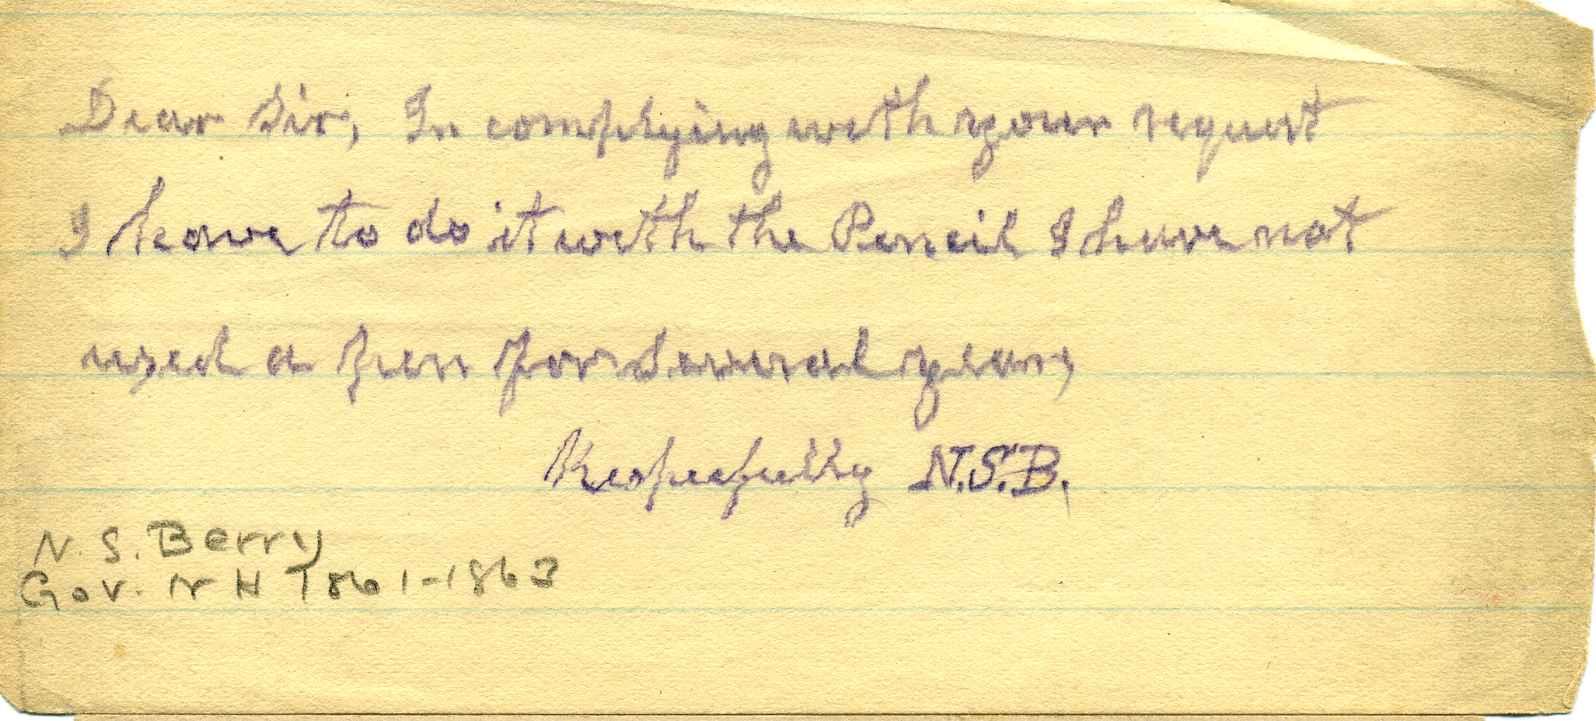 Dear Sir, In complying with your request
I have to do it with the Pencil I have not
used a pen for several years
Respecfully N.S.B.
N. S. Berry
Gov. N H 1861-1863